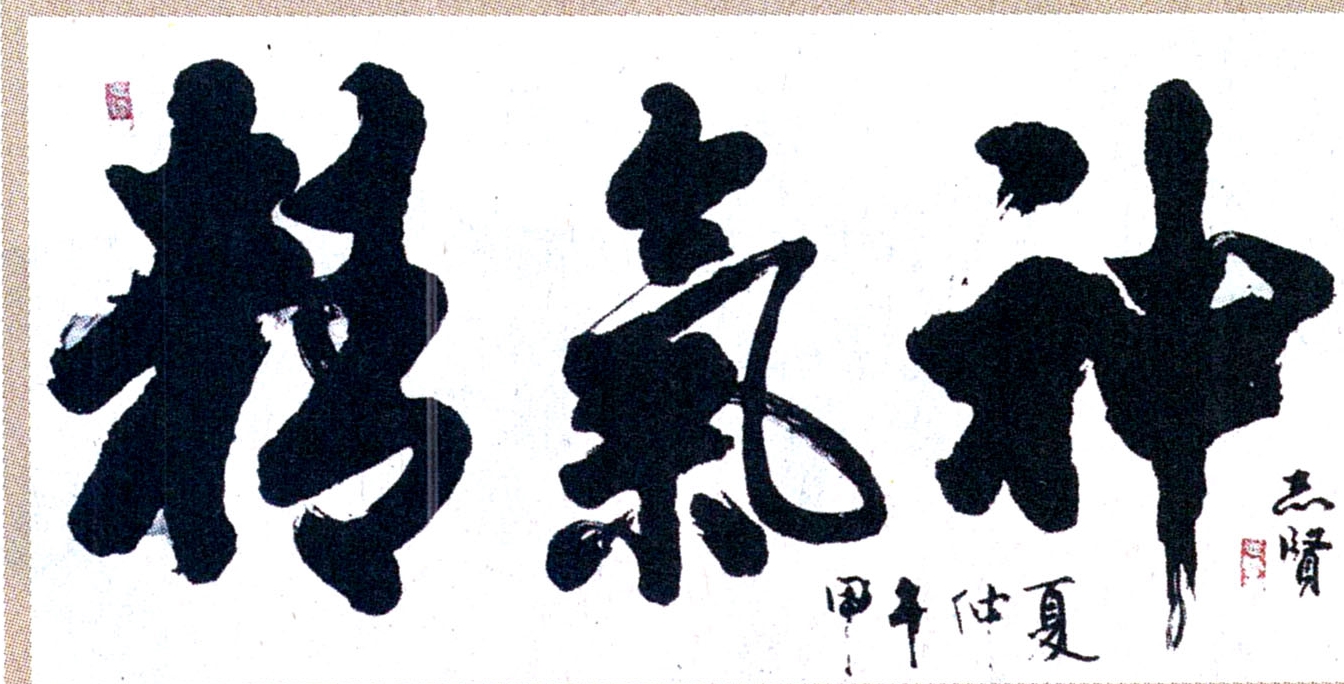 精氣神
甲午仲夏
志賢